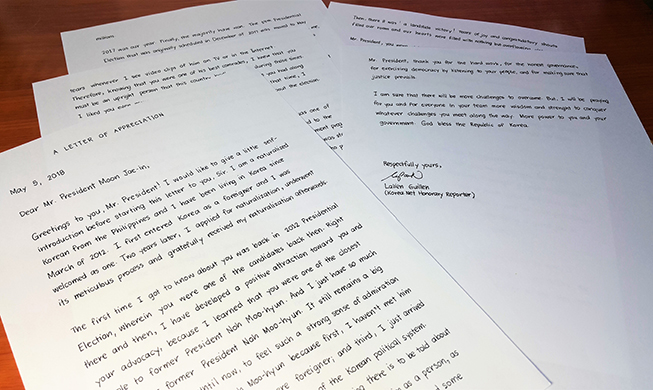 A LETTER OF APPRECIATION
May 5, 2018
Dear Mr. President Moon Jae-in,
Greetings to you, Mr. President! I would like to give a little self-
introduction before starting this letter to you. Sir, I am a naturalized
Korean from the Philippines and I have been living in Korea since
March of 2012. I first entered Korea as a foreigner and I was
welcomed as one. Two years later, I applied for naturalization, underwent
its meticulous process and gratefully received my naturalization afterwards.
The first time I got to know about you was back in 2012 Presidential
Election, wherein you were one of the candidates back then. Right
there and then, I have developed a positive attraction toward you and
your advocacy, because I learned that you were one of the closest
to former President Noh Moo-Hyun. And I just have so much
former President Noh Moo-Hyun. It still remains a big
until now, to feel such a strong sense of admiration
Moo-Hyun because first, I haven't met him
foreigner, and third, I just arrived
of the Korean political system.
there is to be told about
as a person, as
and some
2017 was our year. Finally, the majority have won. The 19th Presidential
Election that was originally scheduled in December of 2017 was moved to May
tears whenever I see video clips of him on TV or in the Internet.
Therefore, knowing that you were one of his best comrades, I knew that you
must be an upright person that this
I liked you
Then, there it was - a landslide victory! Tears of joy and congratulatory shouts
filled our home and our hearts were filled with nothing but
Mr. President, you
Mr. President, thank you for the hard work, for the Korean governance,
for exercising democracy by listening to your people, and for making sure that
justice prevails.
I am sure that there will be more challenges to overcome. But, I will be praying
for you and for everyone in your team more wisdom and strength to conquer
whatever challenges you meet along the way. More power to you and your
government. God bless the Republic of Korea.
Respectfully yours,
Lalien Guillen
(Korea Net Honorary Reporter)